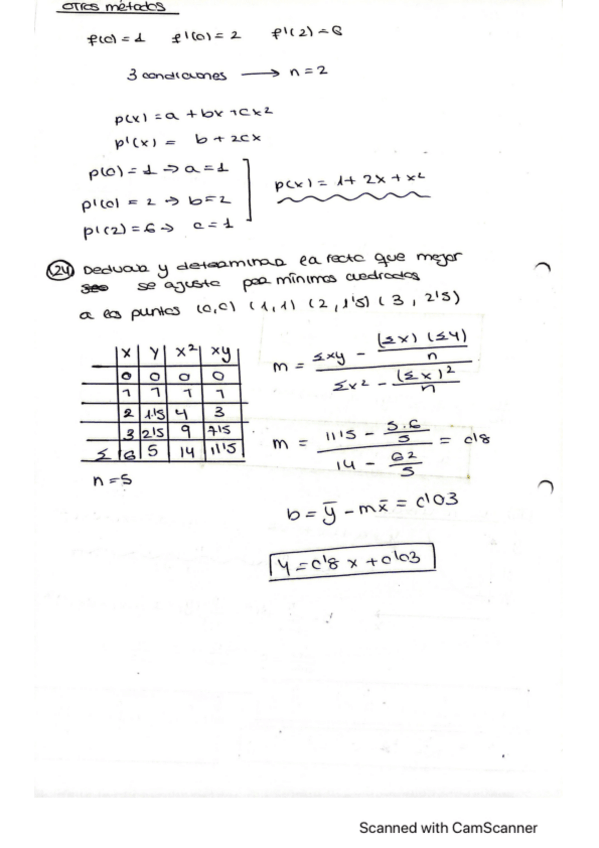 otros métodos
f(0)=1 f'(0)=2 f'(2)=6
3 condiciones → n=2
p(x)=a+bx+cx²
p'(x)= b+2cx
p(0)=1→ a=1
p'(0)=2→ b=2
p'(2)=6→ c=1
p(x)=1+2x+x²
24 Deducir y determinar la recta que mejor
se ajuste por mínimos cuadrados
a los puntos (0,0) (1,1) (2,1'5) (3,2'5)
x y x² xy
0 0 0 0
1 1 1 1
2 1'5 4 3
3 2'5 9 7'5
Σ 6 5 14 11'5
n=5
m = (Σxy - (Σx)(Σy)/n) / (Σx² - (Σx)²/n)
m = (11'5 - 5·6/5) / (14 - 6²/5) = 0'8
b = ȳ - mx̄ = 0'03
y=0'8x+0'03
Scanned with CamScanner